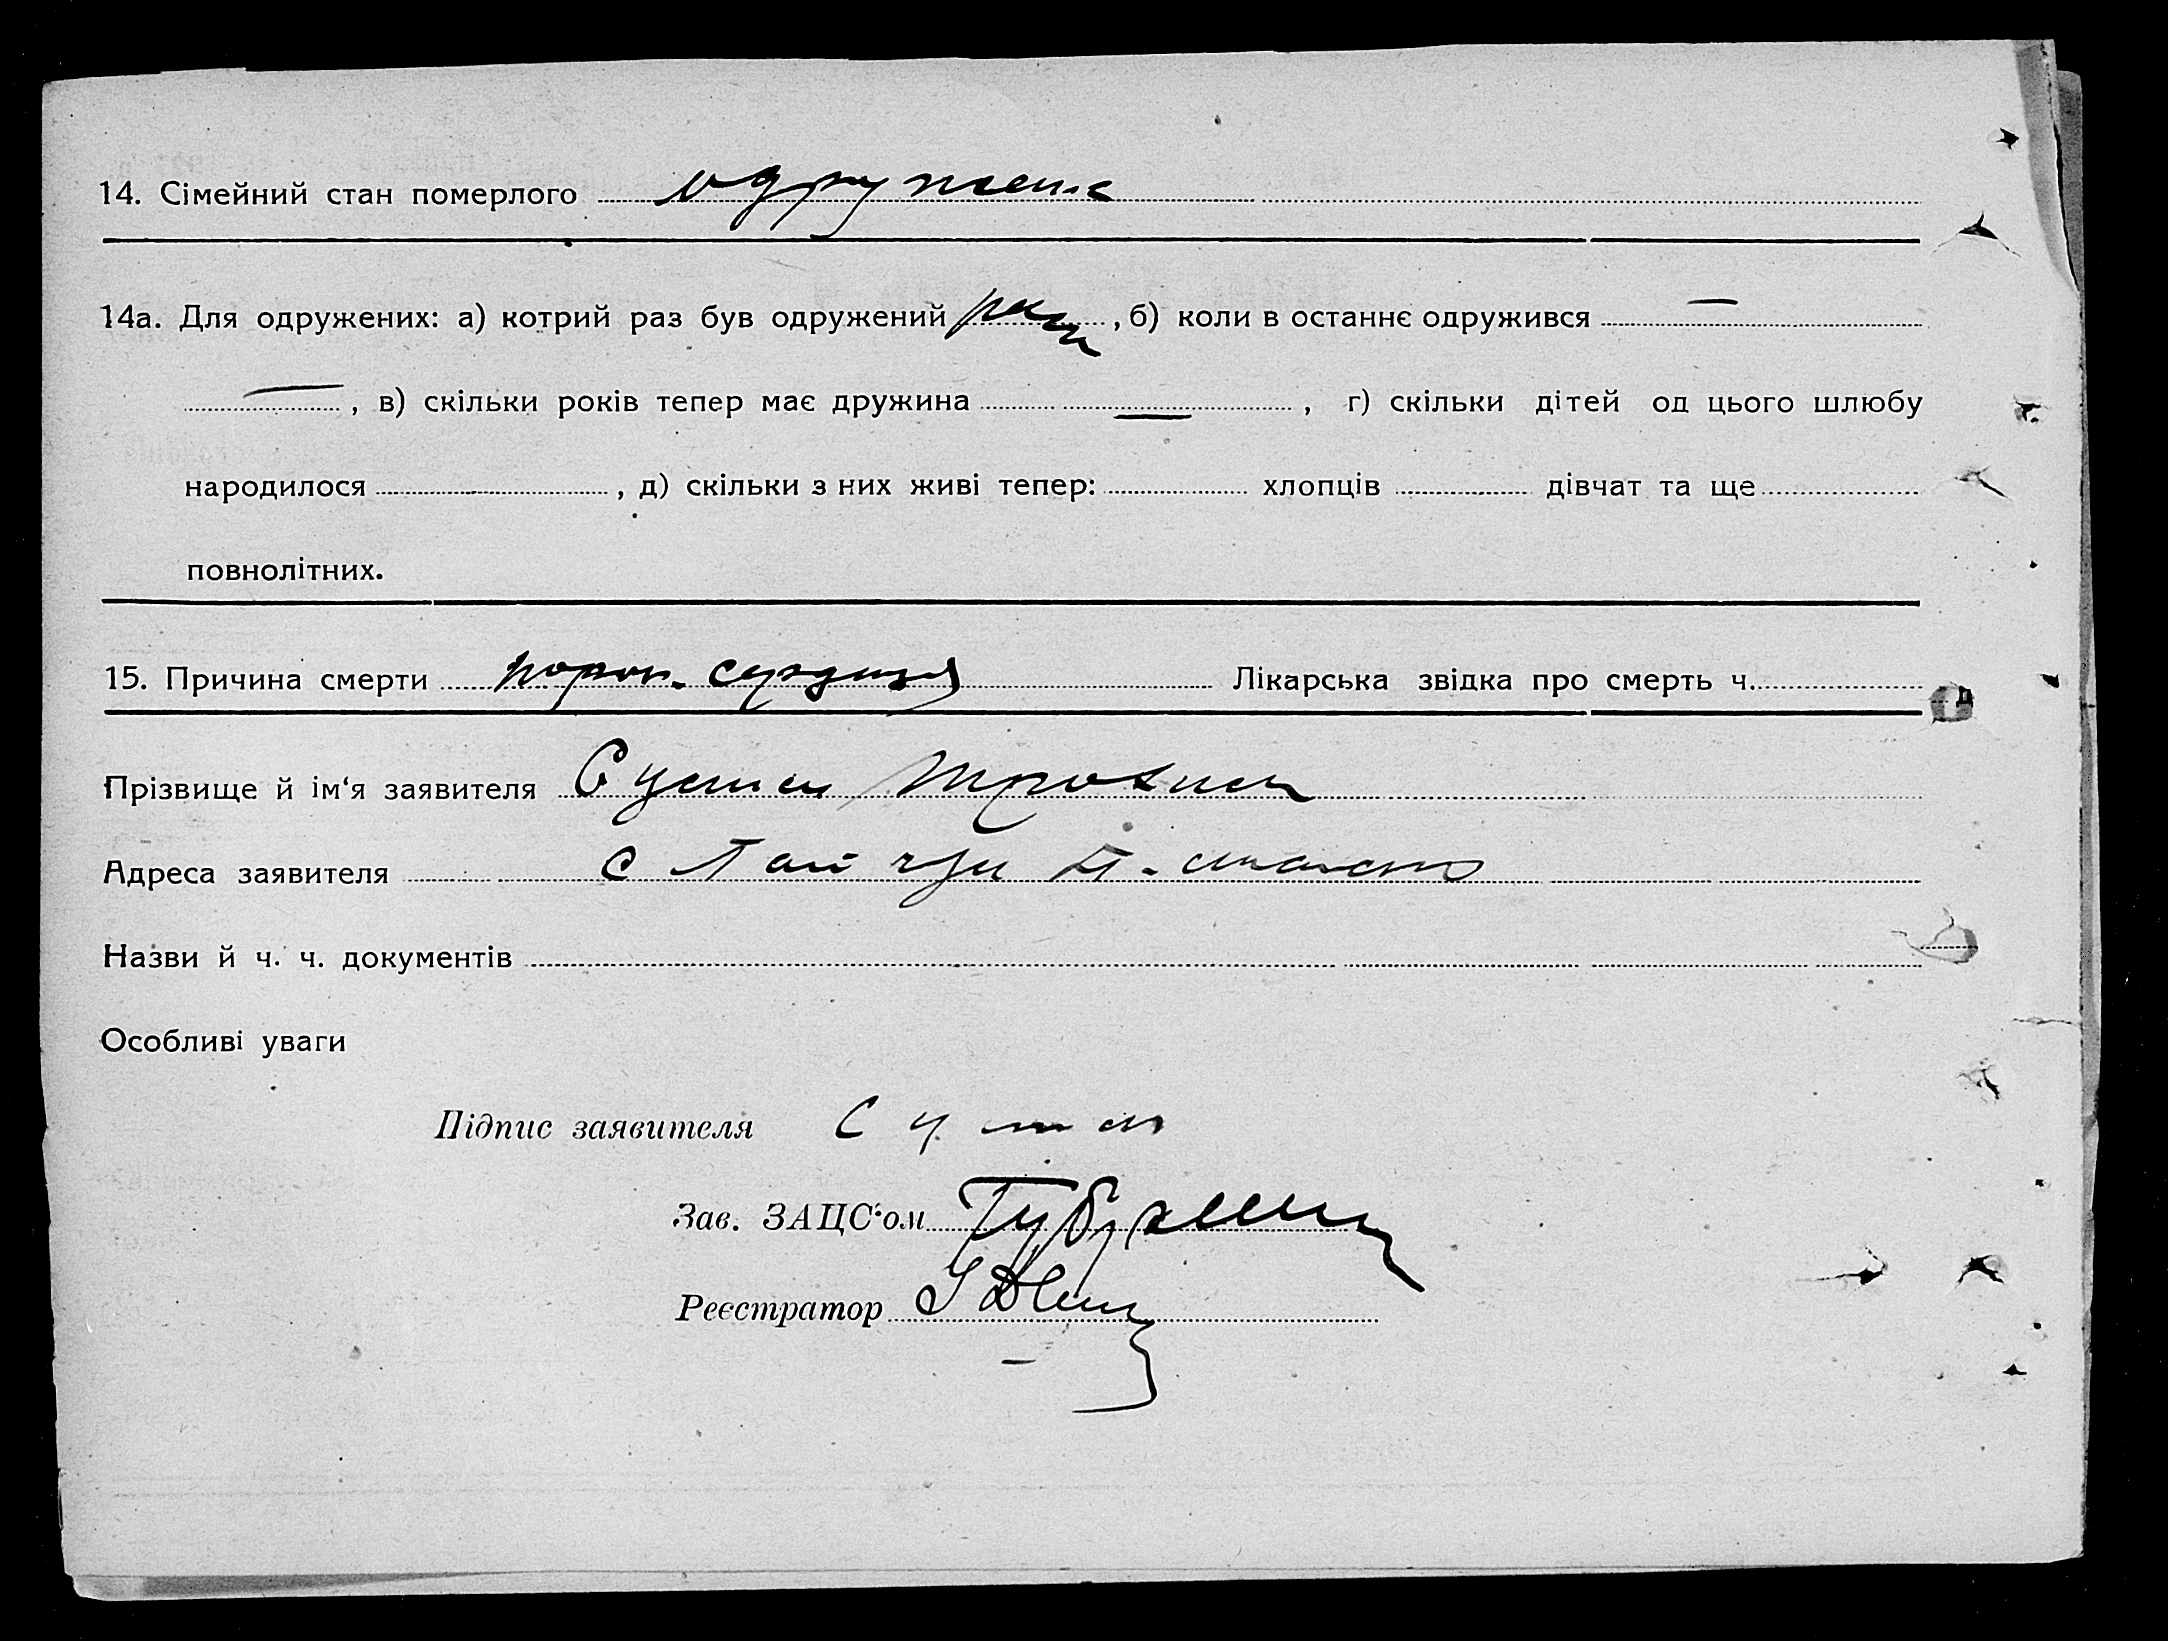 14. Сімейний стан померлого одружена
14а. Для одружених: а) котрий раз був одружений раз, б) коли в останнє одружився —
—, в) скільки років тепер має дружина —, г) скільки дітей од цього шлюбу
народилося , д) скільки з них живі тепер: хлопців дівчат та ще
повнолітних.
15. Причина смерти порок. сердця Лікарська звідка про смерть ч.
Прізвище й ім‘я заявителя
Адреса заявителя с
Назви й ч. ч. документів
Особливі уваги
Підпис заявителя
Зав. ЗАЦС‘ом
Реєстратор